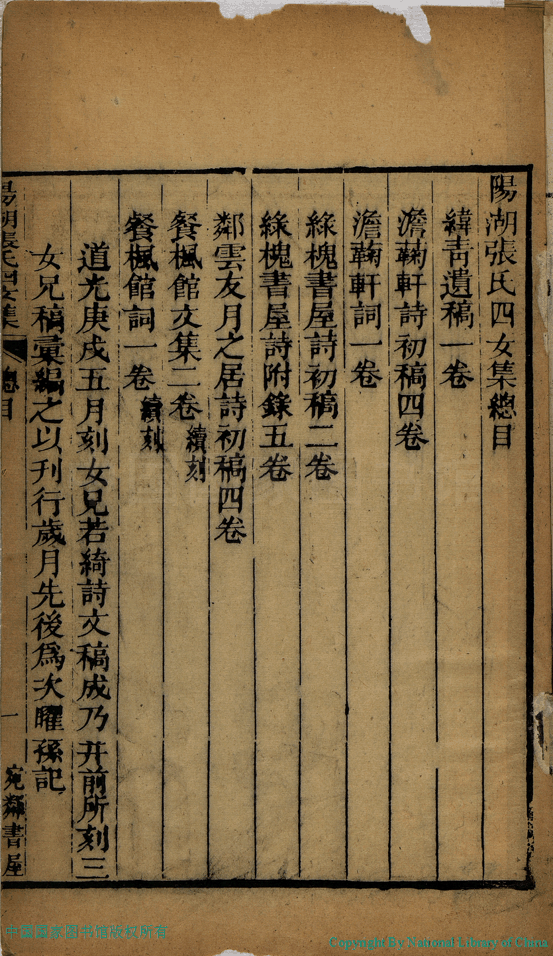 陽湖張氏四女集總目
緯青遺稿一卷
澹蘜軒詩初稿四卷
澹蘜軒詞一卷
綠槐書屋詩初稿二卷
綠槐書屋詩附錄五卷
鄰雲友月之居詩初稿四卷
餐楓館文集二卷續刻
餐楓館詞一卷續刻
道光庚戌五月刻女兄若綺詩文稿成乃并前所刻三
女兄稿彙編之以刊行歲月先後爲次曜孫記
陽湖張氏四女集 總目 一 宛鄰書屋
中国国家图书馆版权所有
Copyright By National Library of China